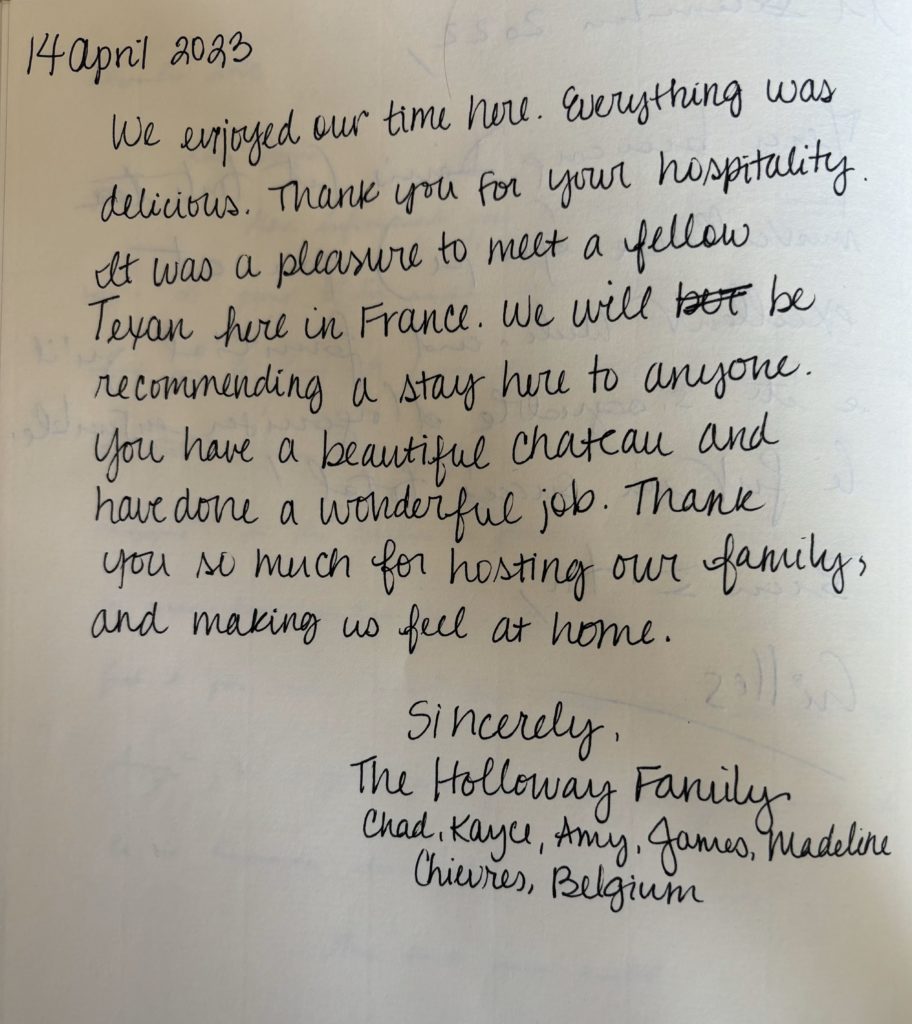 14 April 2023
We enjoyed our time here. Everything was
delicious. Thank you for your hospitality.
It was a pleasure to meet a fellow
Texan here in France. We will but be
recommending a stay here to anyone.
You have a beautiful chateau and
have done a wonderful job. Thank
you so much for hosting our family,
and making us feel at home.
Sincerely,
The Holloway Family
Chad, Kayce, Amy, James, Madeline
Chievres, Belgium